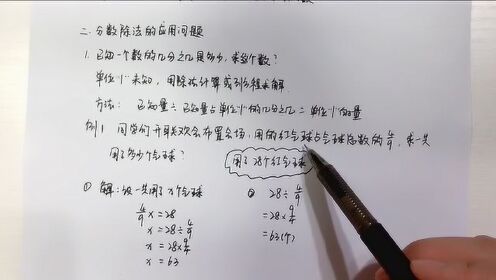 二.分数除法的应用问题
1.已知一个数的几分之几是多少,求这个数?
单位"1"未知,用除法计算或列方程求解
方法: 已知量÷已知量占单位"1"的几分之几=单位"1"的量
例1 同学们开联欢会布置会场,用的红气球占气球总数的4/9,求一共
用了多少个气球? 用了28个红气球
① 解:设一共用了x个气球
4/9 x=28
x=28÷4/9
x=28×9/4
x=63
② 28÷4/9
=28×9/4
=63(个)